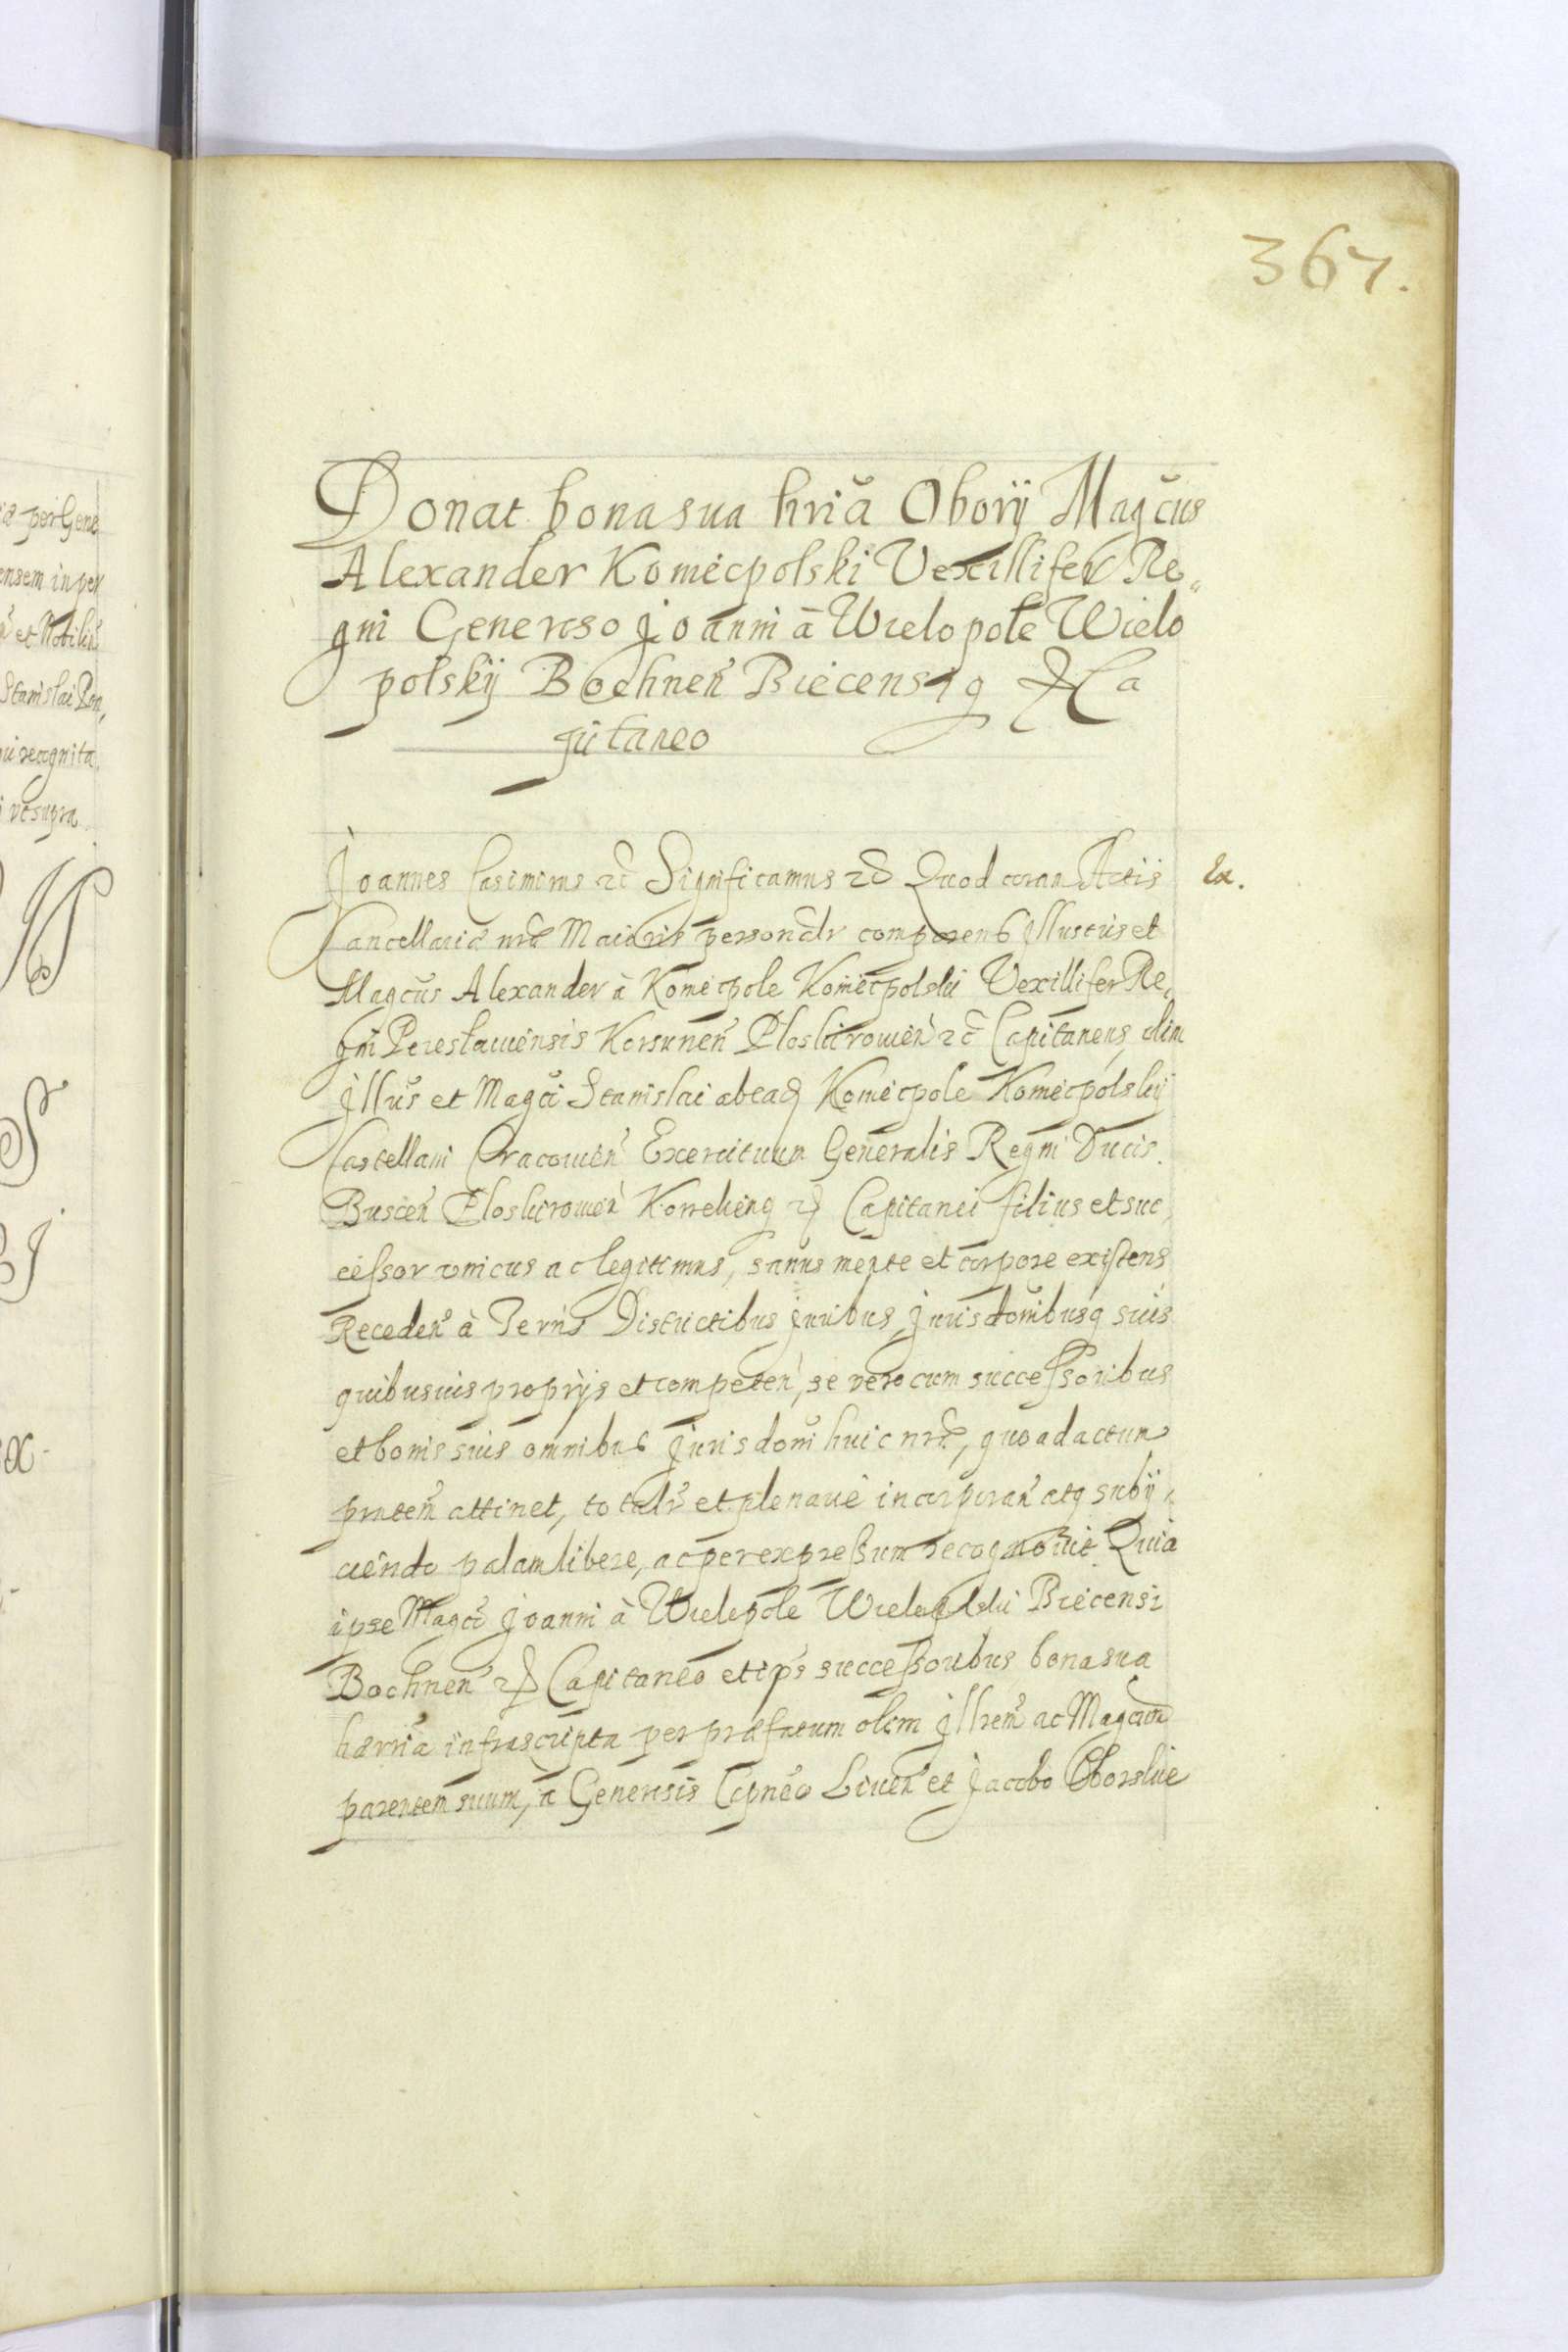 367.
Donat bona sua hria Obory Magcus
Alexander Koniecpolski Vexillifer Re-
gni Generoso Joanni à Wielopole Wielo
polskij Bochnen Biecensiq & Ca
pitaneo
Joannes Casimirus etc Significamus etc Quod coram Actis
Ex.
Cancellariæ nræ Maioris personalr comparens Illustris et
Magcus Alexander à Koniecpole Koniecpolski Vexillifer Re-
gni Pereslauiensis Korsunen Ploskirowien etc Capitaneus, olim
Illus et Magci Stanislai ab eadq Koniecpole Koniecpolskij
Castellani Cracouien Exercituum Generalis Regni Ducis
Buscen Ploskirowien Capitanei filius et suc-
cessor vnicus ac legitimus, sanus mente et corpore existens
Receden à Terris Districtibus Juribus, Jurisdonibusq suis
quibusuis proprijs et competen, se vero cum successoribus
et bonis suis omnibus Jurisdoni huic nræ, quo ad actum
pntem attinet, totalr et plenarie incorporan atq subij-
ciendo palam libere, ac per expressum recognouit Quia
ipse Magco Joanni à Wielopole Wielopolski Biecensi
Bochnen & Capitaneo et ips successoribus bona sua
hærria infrascripta per præfatum olim Illrem ac Magcum
parentem suum, a Generosis Liuen et Jacobo Oborskie
ia per Gene
ensem in per
et Nobilis
Stanislai
ui recognita
vt supra